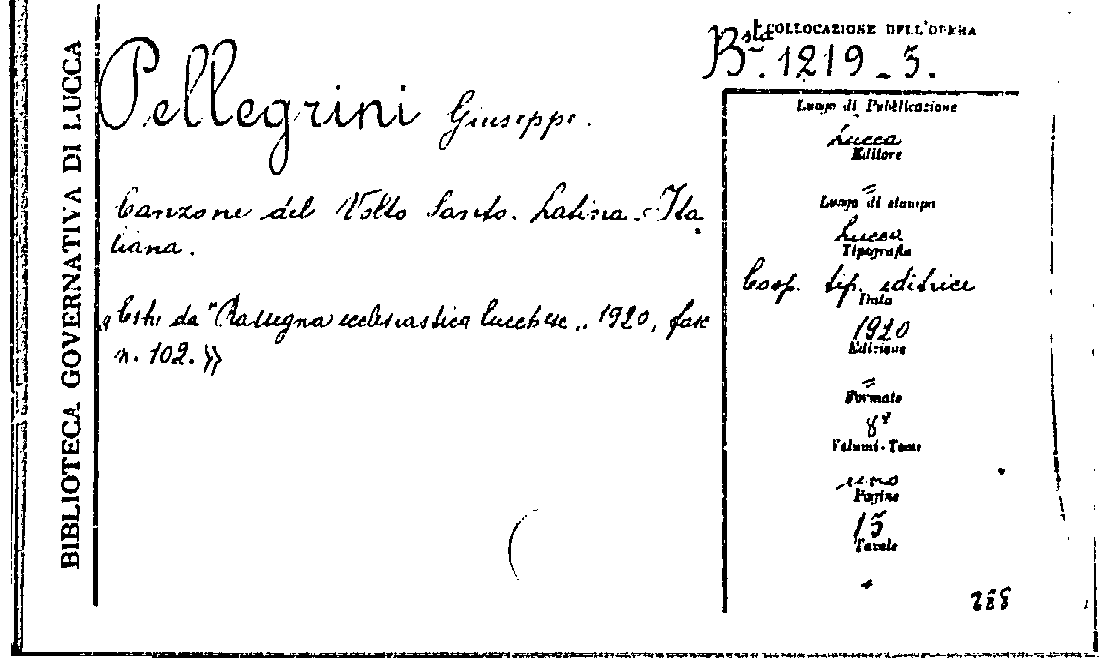 BIBLIOTECA GOVERNATIVA DI LUCCA
COLLOCAZIONE DELL'OPERA
Bsta. 1219-5.
Pellegrini Giuseppe.
Canzone del Volto Santo. Latina-Ita
liana.
"Estr. da "Rassegna ecclesiastica lucchese„ 1920, fasc
n. 102.»
Luogo di Pubblicazione
Lucca
Editore
=
Luogo di stampa
Lucca
Tipografia
Coop. tip. editrice
Data
1920
Edizione
=
Formato
8°
Volumi-Tomi
uno
Pagine
15
Tavole
288